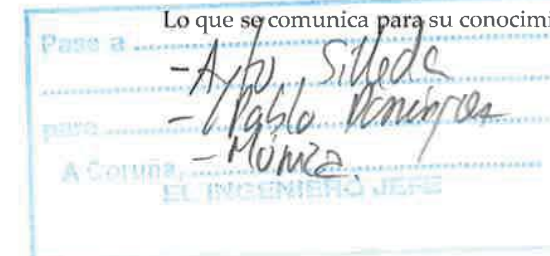 Lo que se comunica para su conocimi
Pase a
- Ayto Silleda
para
- Pablo Domínguez
- Mónica.
A Coruña,
EL INGENIERO JEFE